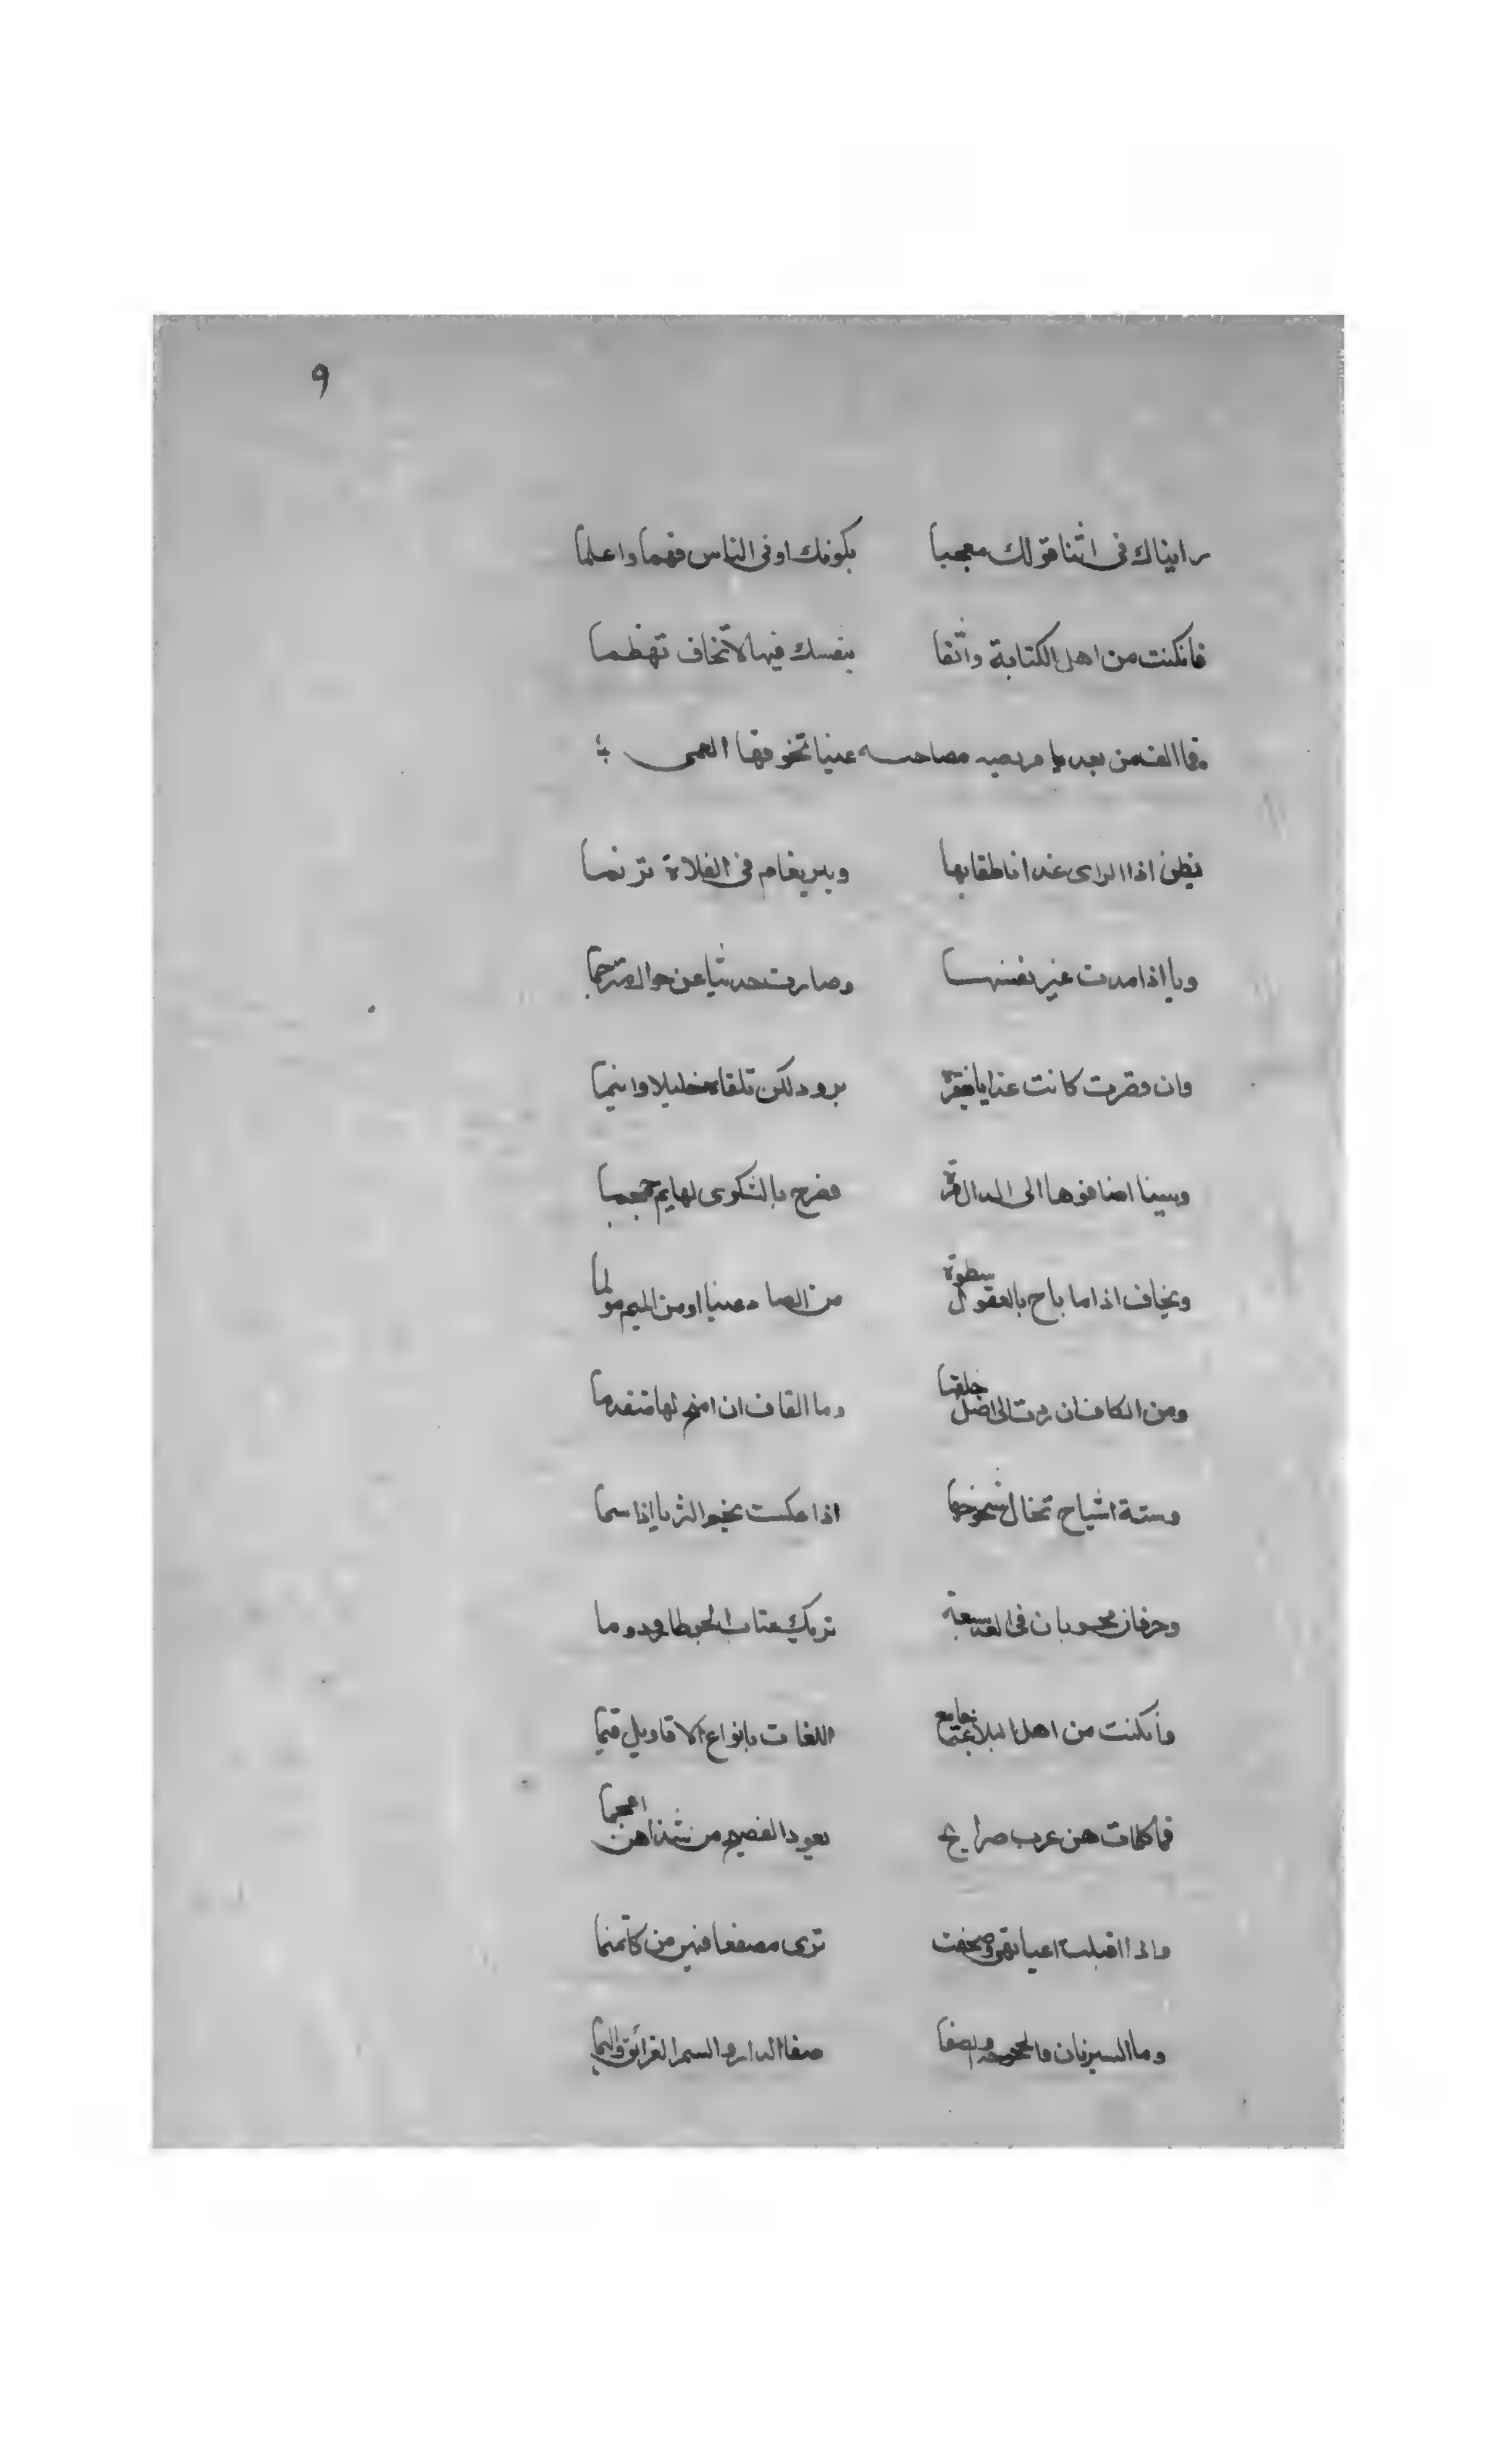 ٩
رايناك فى اثنا قولك معجبا بكونك اوفى الناس فهما واعلما
فانكنت من اهل الكتابة واثقا بنفسك فيها لا تخاف تهظما
فما الف من بعد يا مريضه مصاحبه عينا تخوفها العمى
يظن اذا الراى غدا ناطقا بها وبير بغام فى الفلاة ترنما
ويا اذا مدت غير نفسها وصارت حديثا عن حوال مترجما
وان قصرت كانت عذايا برود لكن تلقاه خليلا وابنما
وسينا اضافوها الى الدال مرة فصرح بالشكوى لها ثم جمجما
ويخاف اذا ما باح بالقول سطوة من الصاد عينا او من الميم مولما
ومن الكاف ان ردت الى اصل خلقها وما القاف ان امنح لها متقدما
وستة اشياح تخال شموخها اذا عكست نحو الثريا اذا سما
وحرفان محسوبان فى العد سبعة تريك عتاب
فانكنت من اهل البلاغة جامع اللغات بانواع الاقاويل قيما
فما كلمات هن عرب صرايح يعود الفصيح من شذاهن اعجما
واذا اقبلت اعيا وصحفت ترى مصقعا فيهن من كان مفحما
وما السيرنان صفا الدارو السمر الغرائق واللما